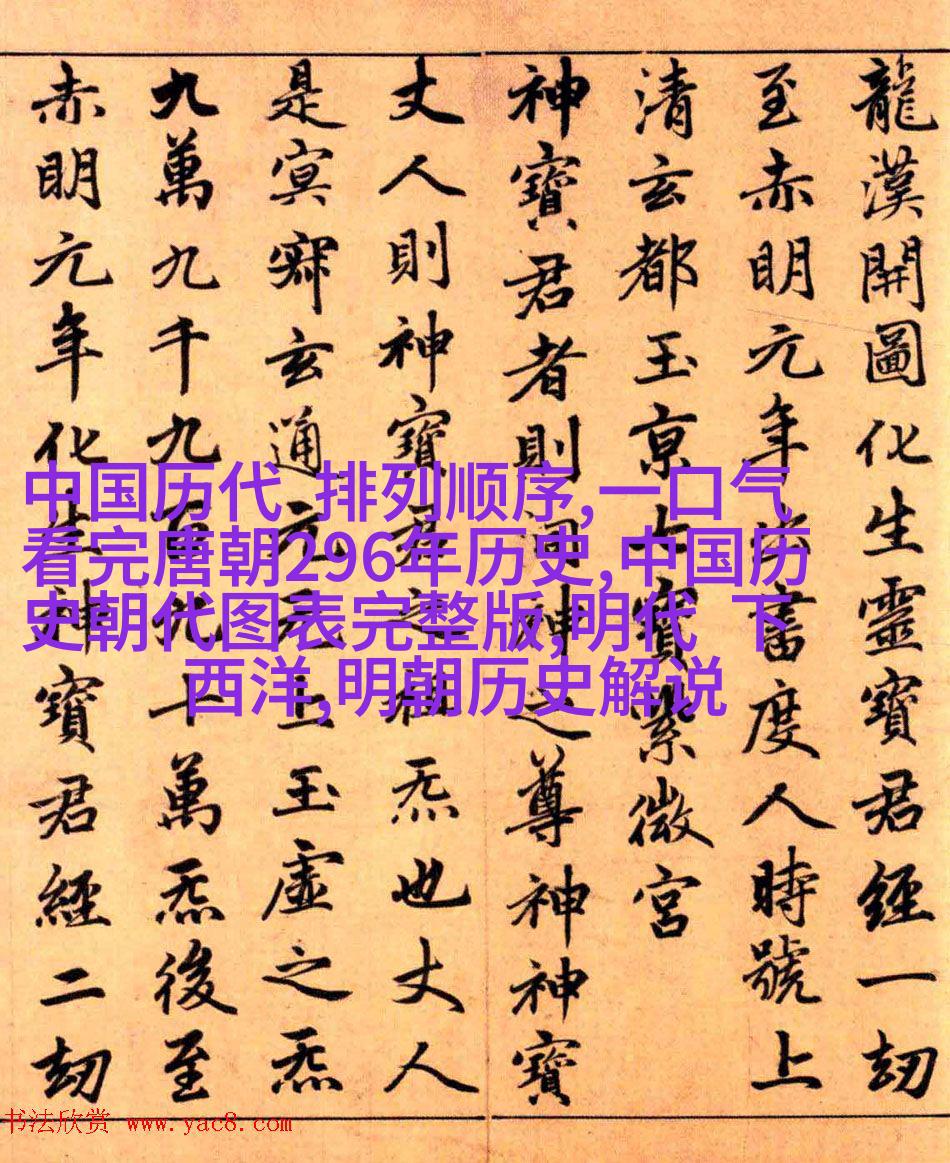 龍漢開圖化生靈寶君經一劫
至赤明元年出書度人時號上
清玄都玉京七寶紫微宮
神寶君者則洞神之尊神神寶
丈人則神寶君之祖炁也丈人
是冥寂玄通元上玉虛之炁
九萬九千九百九十萬炁後至
赤明元年化生神寶君經二劫
中国历代 排列顺序,一口气
看完唐朝296年历史,中国历
史朝代图表完整版,明代 下
西洋,明朝历史解说
书法欣赏 www.yac8.com